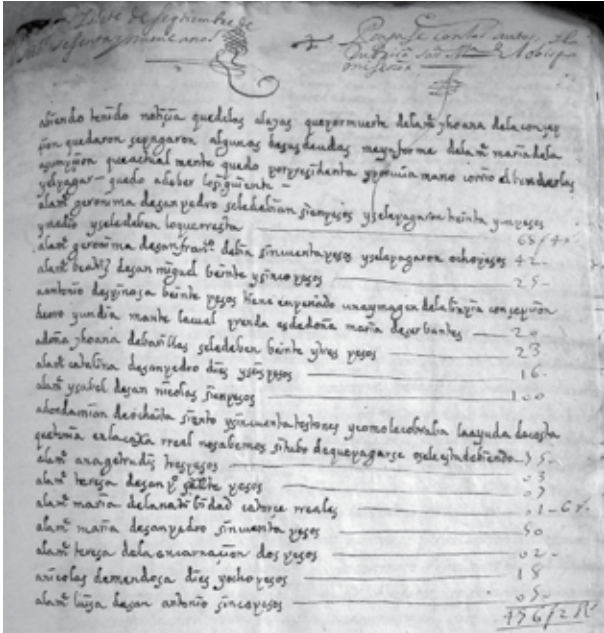 siete de septiembre de
mill sesenta y nueve años
Pongase con los autos
abiendo tenido notiçia que de las alajas que por muerte de la me jhoana de la consep
çion quedaron se pagaron algunas de sus deudas me ynforme de la me maria de la
asumpsion que actual mente quedo por presidenta y por cuia mano corrio el benderlas
y el pagar — quedo a deber lo siguiente —
a la me geronima de san pedro se le debian sien pesos y se le pagaron treinta y un pesos
y medio y se le deben lo que resta — 68 / 4
a la me geronima de san franco debia sincuenta pesos y se le pagaron ocho pesos 42 -
a la me beatriz de san miguel beinte y sinco pesos — 25 -
a antonio despinosa beinte pesos tiene enpeñado una ymagen de la linpia consepsion
de oro y un diamante la cual prenda es de doña maria de serbantes — 20
a doña jhoana debasillas se le deben beinte y tres pesos — 23
a la me catalina de san pedro dies y seis pesos — 16 -
a la me ysabel de san nicolas sien pesos — 100
siento y sincuenta tostones y como le cobraba la ayuda de costa
que tenia en la caxa rreal no sabemos si tubo de que pagarse o se le esta debiendo - 75 -
a la me ana getrudis tres pesos — 03
a la me teresa de san po siette pesos — 07
a la me maria de la natibidad catorse rreales — 01 - 6 rs
a la me maria de san pedro sincuenta pesos — 50
a la me teresa de la encarnaçion dos pesos — 02 -
a nicolas de mendosa dies y ocho pesos — 18
a la me luisa de san antonio sinco pesos — 05 -
456 / 2 Rs